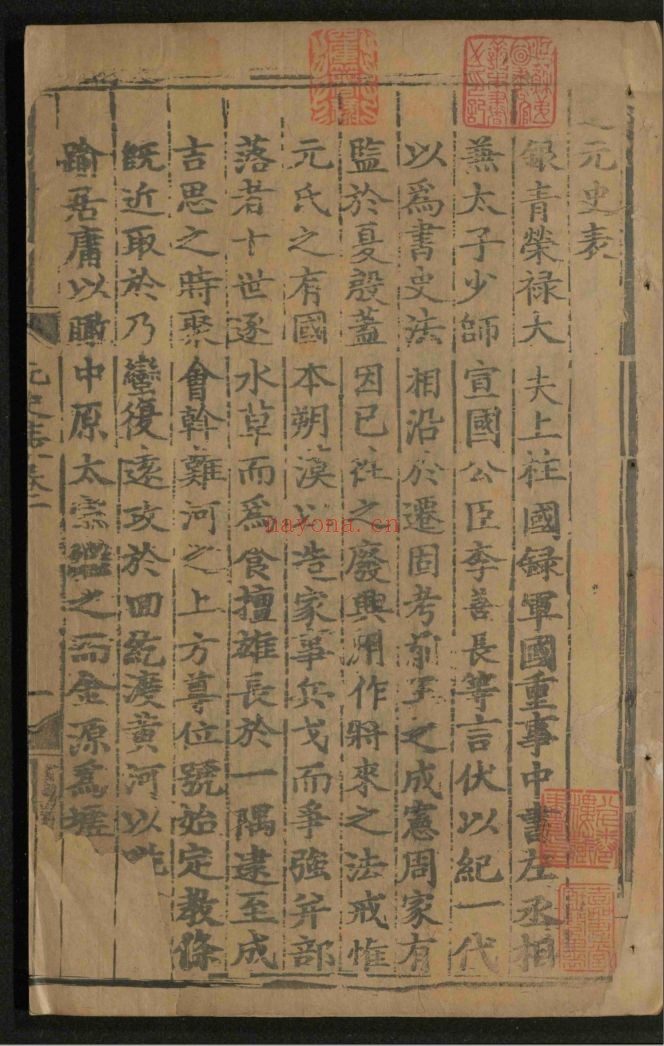 進元史表
銀青榮祿大夫上柱國録軍國重事中書左丞相
兼太子少師宣國公臣李善長等言伏以紀一代
以爲書史法相沿於遷固考前王之成憲周家有
監於夏殷蓋因已徃之廢興用作將來之法戒惟
元氏之有國本朔漠以造家事兵戈而爭強并部
落者十世逐水草而爲食擅雄長於一隅逮至成
吉思之時聚會斡難河之上方尊位號始定教條
旣近取於乃蠻復遠攻於回紇渡黃河以
踰居庸以瞰中原太宗繼之而金源爲墟
元史表
一
nayona.cn